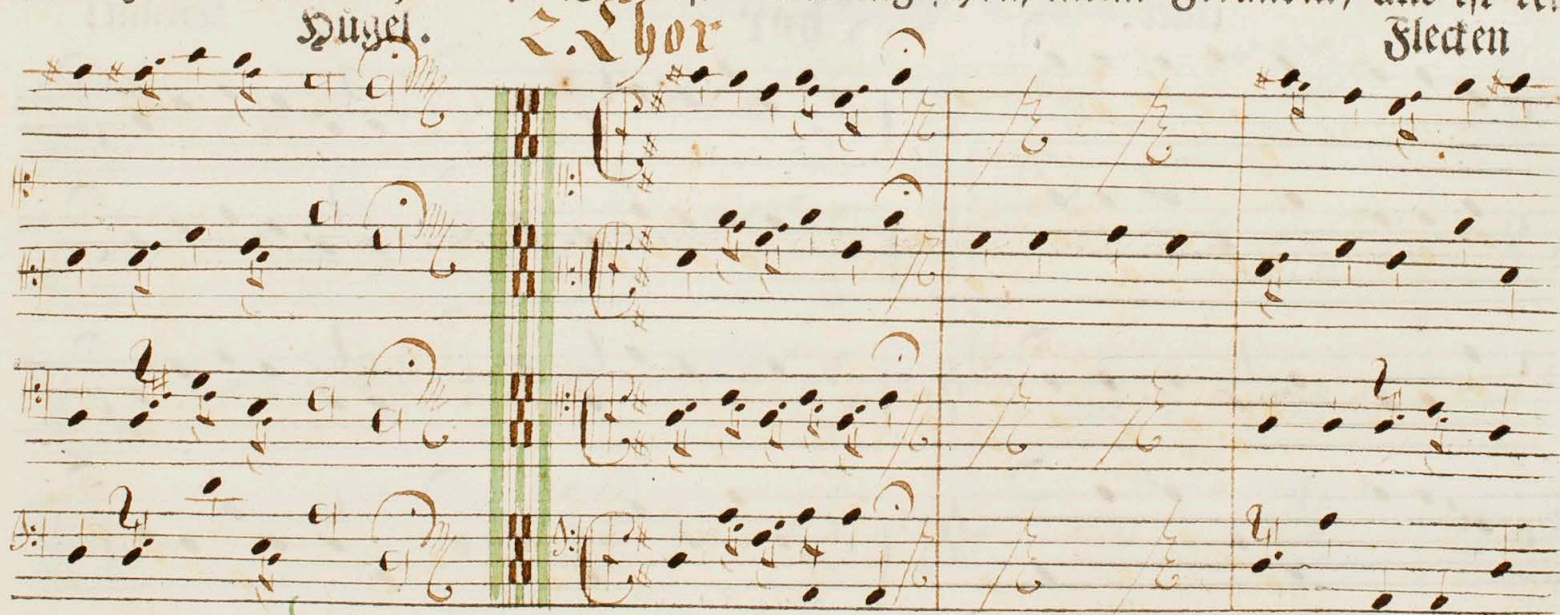 Hügel. 2. Chor Flecken